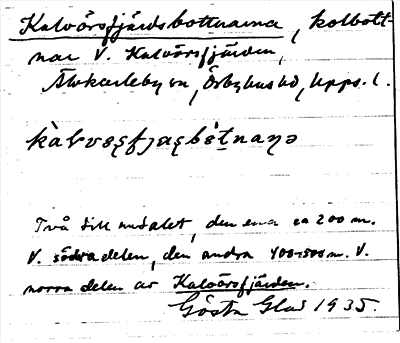 Kalvörsfjärdsbottnarna, kolbott-
nar V. Kalvörsfjärden,
Älvkarleby sn, Örbyhus hd, Upps. l.
Två till antalet, den ena ca 200 m.
V. södra delen, den andra 400-500 m. V.
norra delen av Kalvörsfjärden.
Gösta Glas 1935.